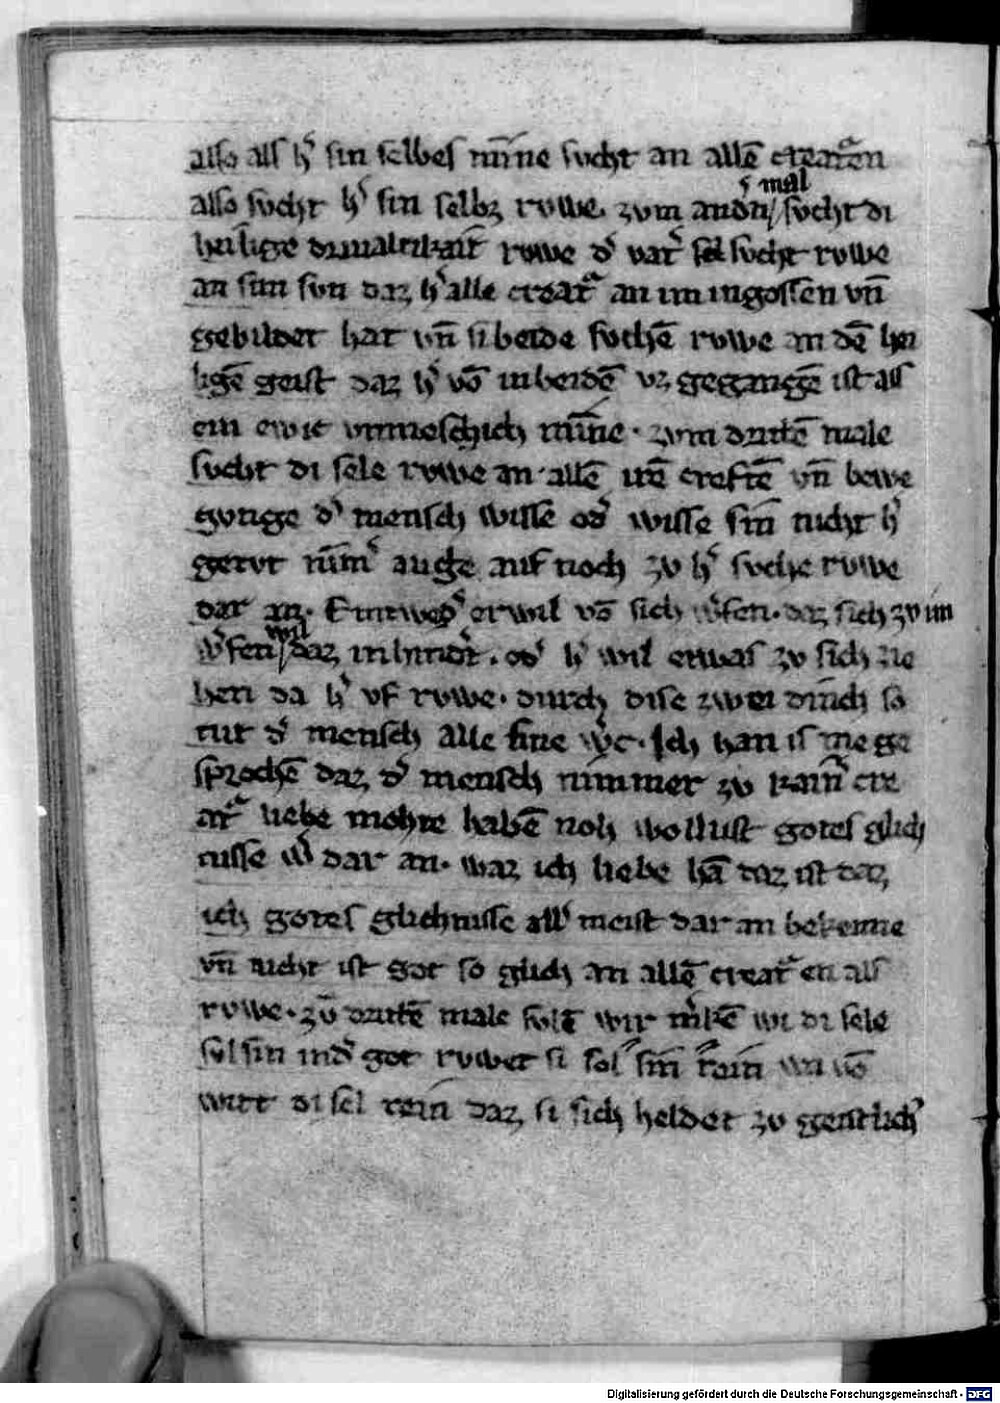 also als h᷑ sin selbes mīne sucht an allē creat᷑en
also sucht h᷑ sin selbz ruwe. zum andn̄ sucht di
s mal
heilige driualtikait ruwe d᷑ uat᷑ sel sucht ruwe
an sim sun daz h᷑ alle creat᷑ an im ingossen vn̄
gebildet hat vn̄ si beide suchē ruwe an dē hei
ligē geist daz h᷑ vō in beidē vz gegangē ist als
ein ewic vnmeschich mīne. zum drittē male
sucht di sele ruwe an allē irē creftē vn̄ bewe
gunge d᷑ mensch wisse od᷑ wisse sin nicht h᷑
getut nīm᷑ auge auf noch zu h᷑ suche ruwe
dar an. Eintwed᷑ er wil vō sich w᷑fen. daz sich zu im
w᷑fen wil daz in hind᷑t. od᷑ h᷑ wil etwas zu sich zie
hen da h᷑ uf ruwe. durch dise zwei dinch so
tut d᷑ mensch alle sine w᷑c. Ich han is me ge
sprochē daz d᷑ mensch nimmer zu kain᷑ cre
at᷑ liebe mohte habē noh wollust gotes glich
nisse w᷑ dar an. waz ich liebe hā daz ist daz
ich gotes glichnisse all᷑ meist dar an bekenne
vn̄ nicht ist got so glich an allē creat᷑en als
ruwe. zū drittē male sulē wir m᷑kē wi di sele
sul sin in d᷑ got ruwet si sol sin rain wa vō
wirt di sel rein daz si sich heldet zu geistlich᷑
Digitalisierung gefördert durch die Deutsche Forschungsgemeinschaft - DFG